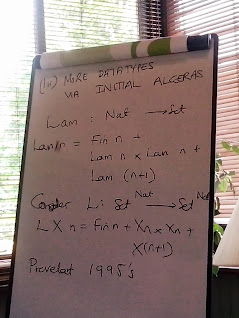 (1n) MORE DATATYPES
VIA INITIAL ALGEBRAS
Lam : Nat → Set
Lam n = Fin n +
Lam n × Lam n +
Lam (n+1)
Consider L : Set^Nat → Set^Nat
L X n = Fin n + Xn × Xn +
X(n+1)
1995's